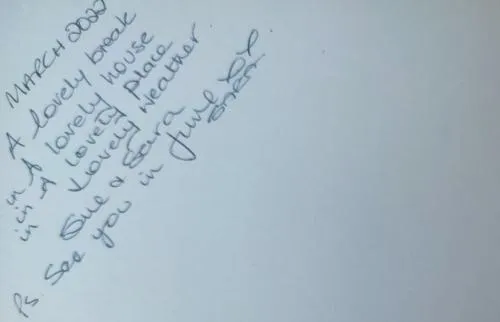 MARCH 2022
A lovely break
in A lovely house
in A lovely place
Lovely weather.
Sue & Sara
Ps. See you in June